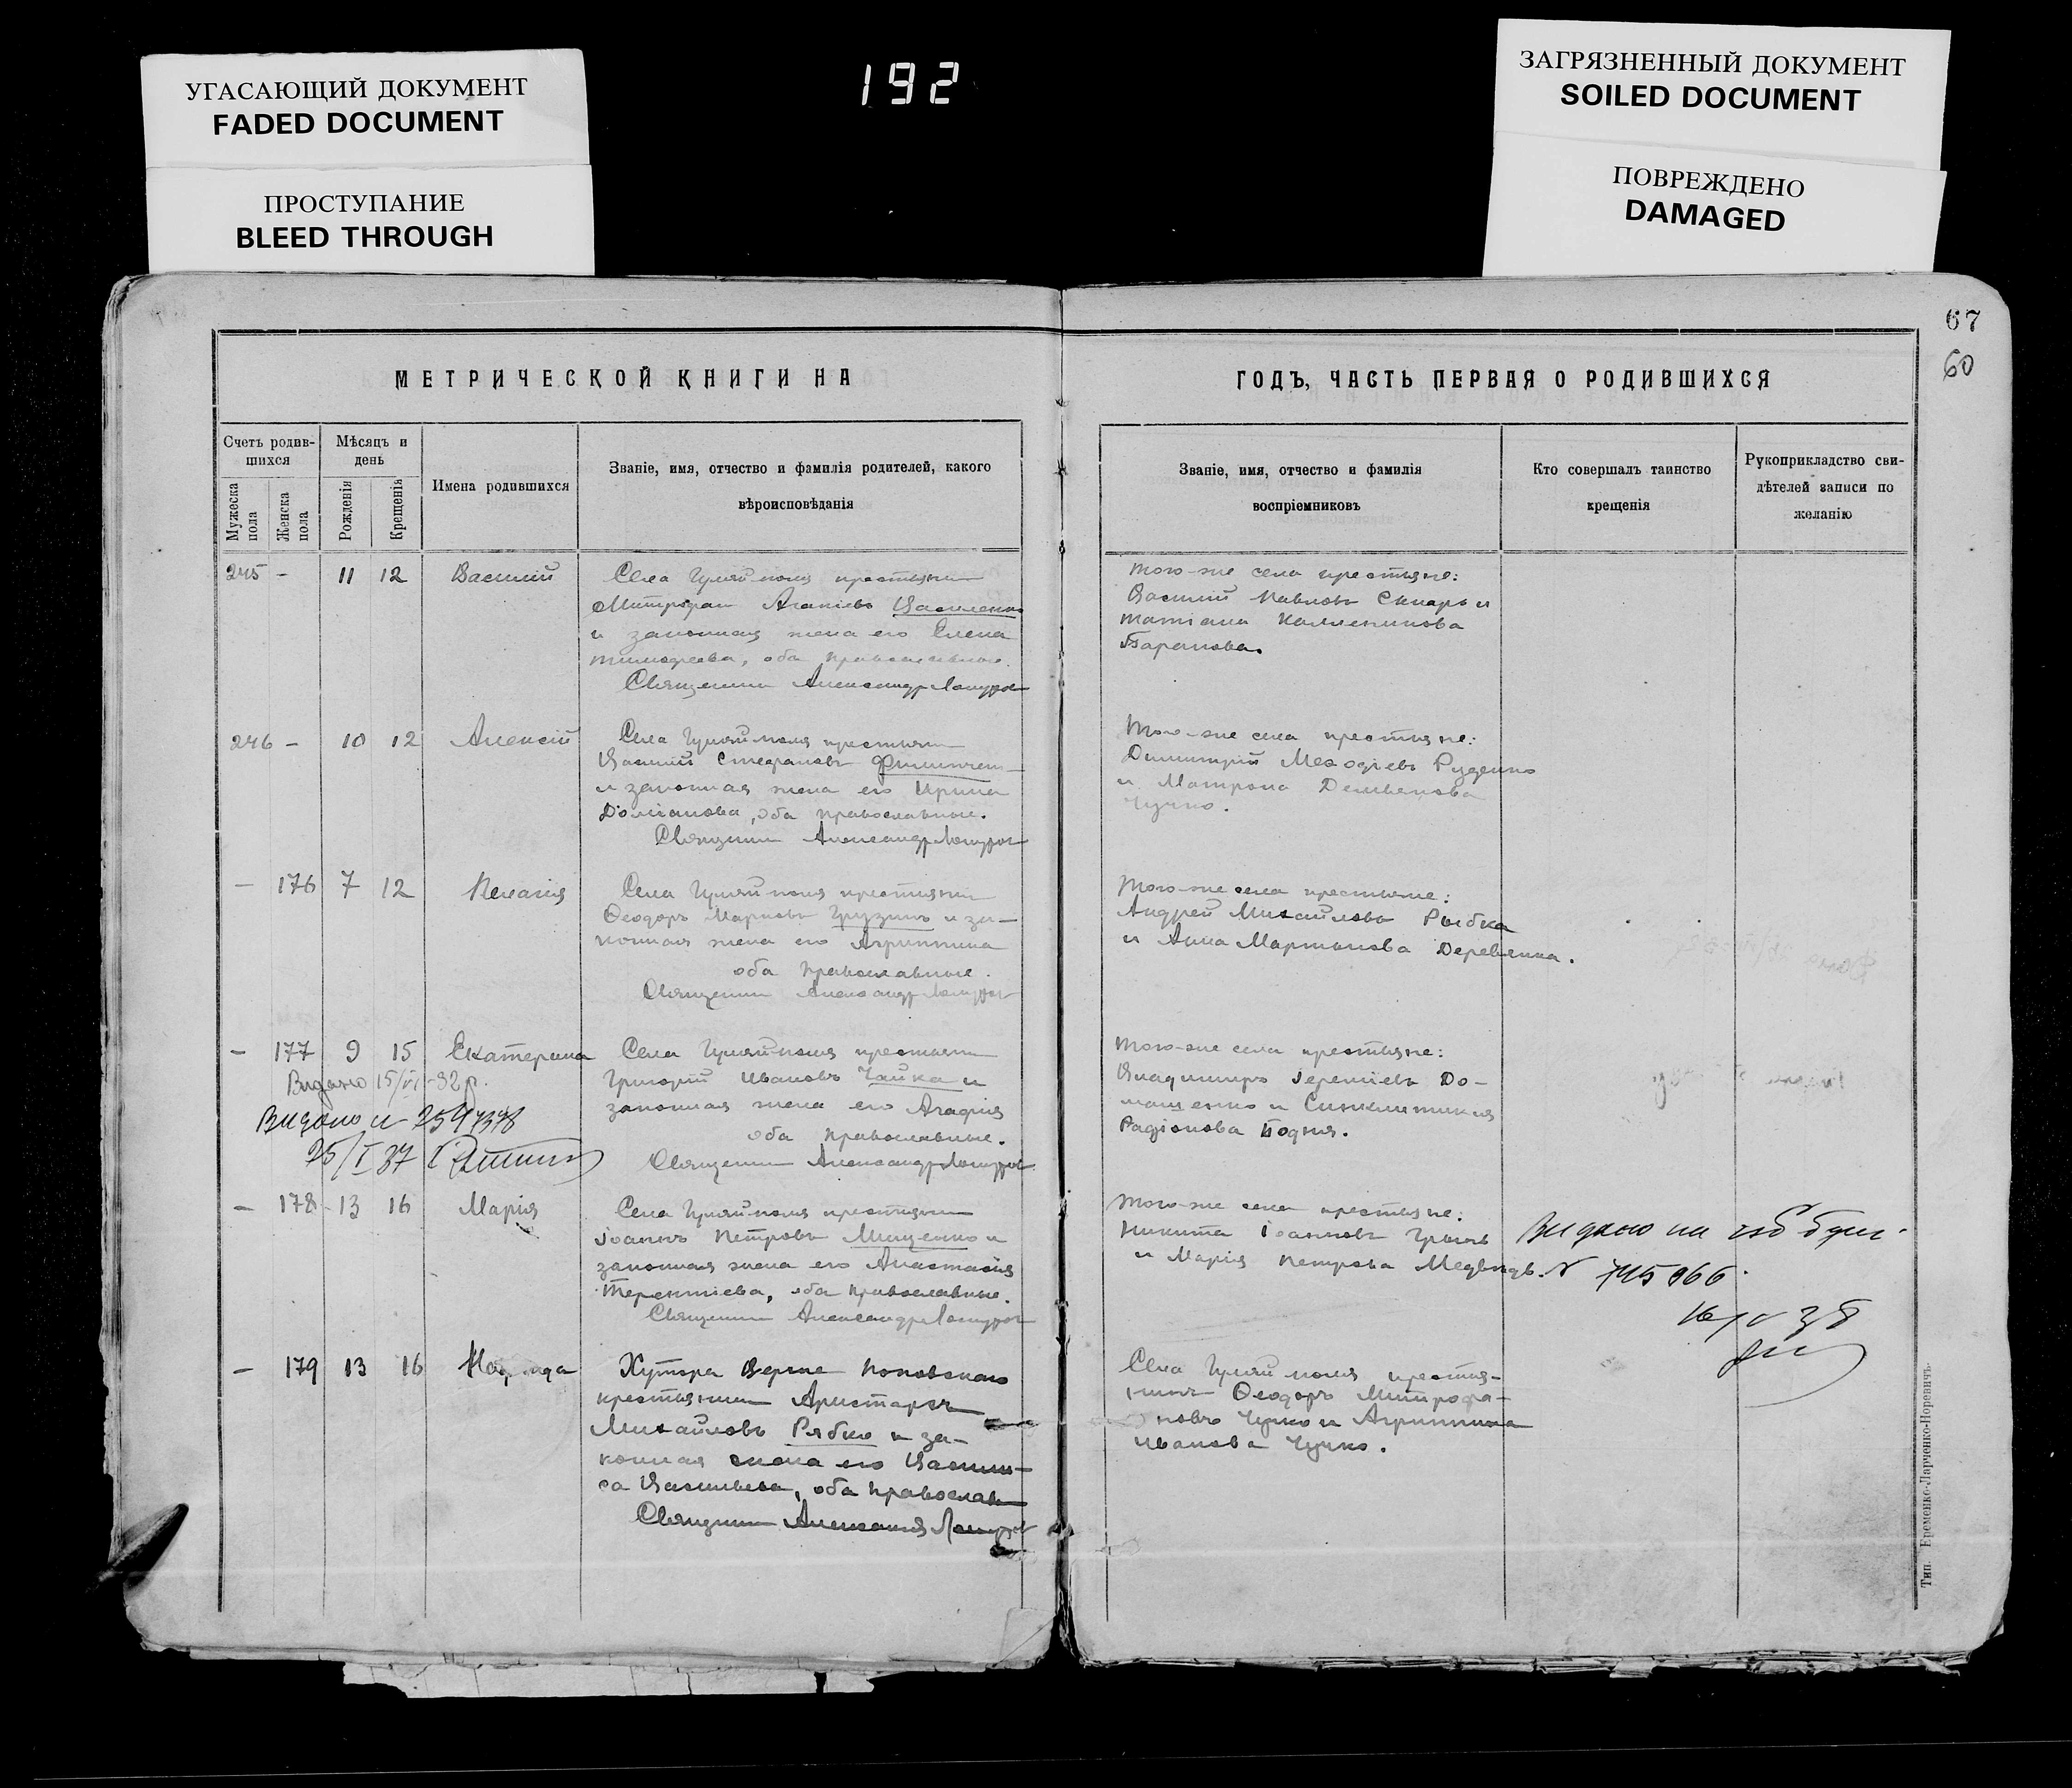 УГАСАЮЩИЙ ДОКУМЕНТ
FADED DOCUMENT
ПРОСТУПАНИЕ
BLEED THROUGH
192
ЗАГРЯЗНЕННЫЙ ДОКУМЕНТ
SOILED DOCUMENT
ПОВРЕЖДЕНО
DAMAGED
67
60
МЕТРИЧЕСКОЙ КНИГИ НА
Счетъ родив-
шихся
Мужеска пола
Женска пола
Мѣсяцъ и
день
Рожденія
Крещенія
Имена родившихся
Званіе, имя, отчество и фамилія родителей, какого
вѣроисповѣданія
245 - 11 12 Василій
Села Гуляйполя крестьянин
Митрофан Агапіевъ Василенко
и законная жена его Елена
Тимофеева, оба православные.
Священник Александр
246 - 10 12 Алексій
Села Гуляйполя крестьянин
Василій Стефановъ
и законная жена его Ирина
оба православные.
Священник Александр
- 176 7 12 Пелагія
Села Гуляйполя крестьянин
Ѳеодоръ Марковъ Грузинъ и за-
конная жена его Агриппина
оба православные.
Священник Александр
- 177 9 15 Екатерина
Видано 15/VI-32 р.
Видано
25/I 37
Села Гуляйполя крестьянин
Григорій Ивановъ Чайка и
законная жена его Агафія
оба православные.
Священник Александр
- 178 13 16 Марія
Села Гуляйполя крестьянин
Іоаннъ Петровъ Мищенко и
законная жена его Анастасія
Терентіева, оба православные.
Священник Александр
- 179 13 16
Хутора Верхне
крестьянин Аристархъ
Михайловъ Рябко и за-
конная жена его Васили-
са Васильева, оба православн
Священник
ГОДЪ, ЧАСТЬ ПЕРВАЯ О РОДИВШИХСЯ
Званіе, имя, отчество и фамилія
воспріемниковъ
Кто совершалъ таинство
крещенія
Рукоприкладство сви-
дѣтелей записи по
желанію
Того-же села крестьяне:
Василій Павловъ и
Татіана Каллиникова
Баранова.
Того-же села крестьяне:
Димитрій Меѳодіевъ Руденко
и Матрона
Чучко.
Того-же села крестьяне:
Андрей Михайловъ Рыбка
и Анна Мартынова Деревянка.
Того-же села крестьяне:
Владимиръ Іереміевъ До-
мащенко и Синклитикія
Радіонова Бодня.
Того-же села крестьяне:
Никита Іоанновъ
и Марія Петрова Медвидь.
Видано на
N 745066
Села Гуляйполя крестья-
нинъ Ѳеодоръ Митрофа-
новъ Чучко и Агриппина
Иванова Чучко.
Тип. Еременко-Ларченко-Норевичъ.